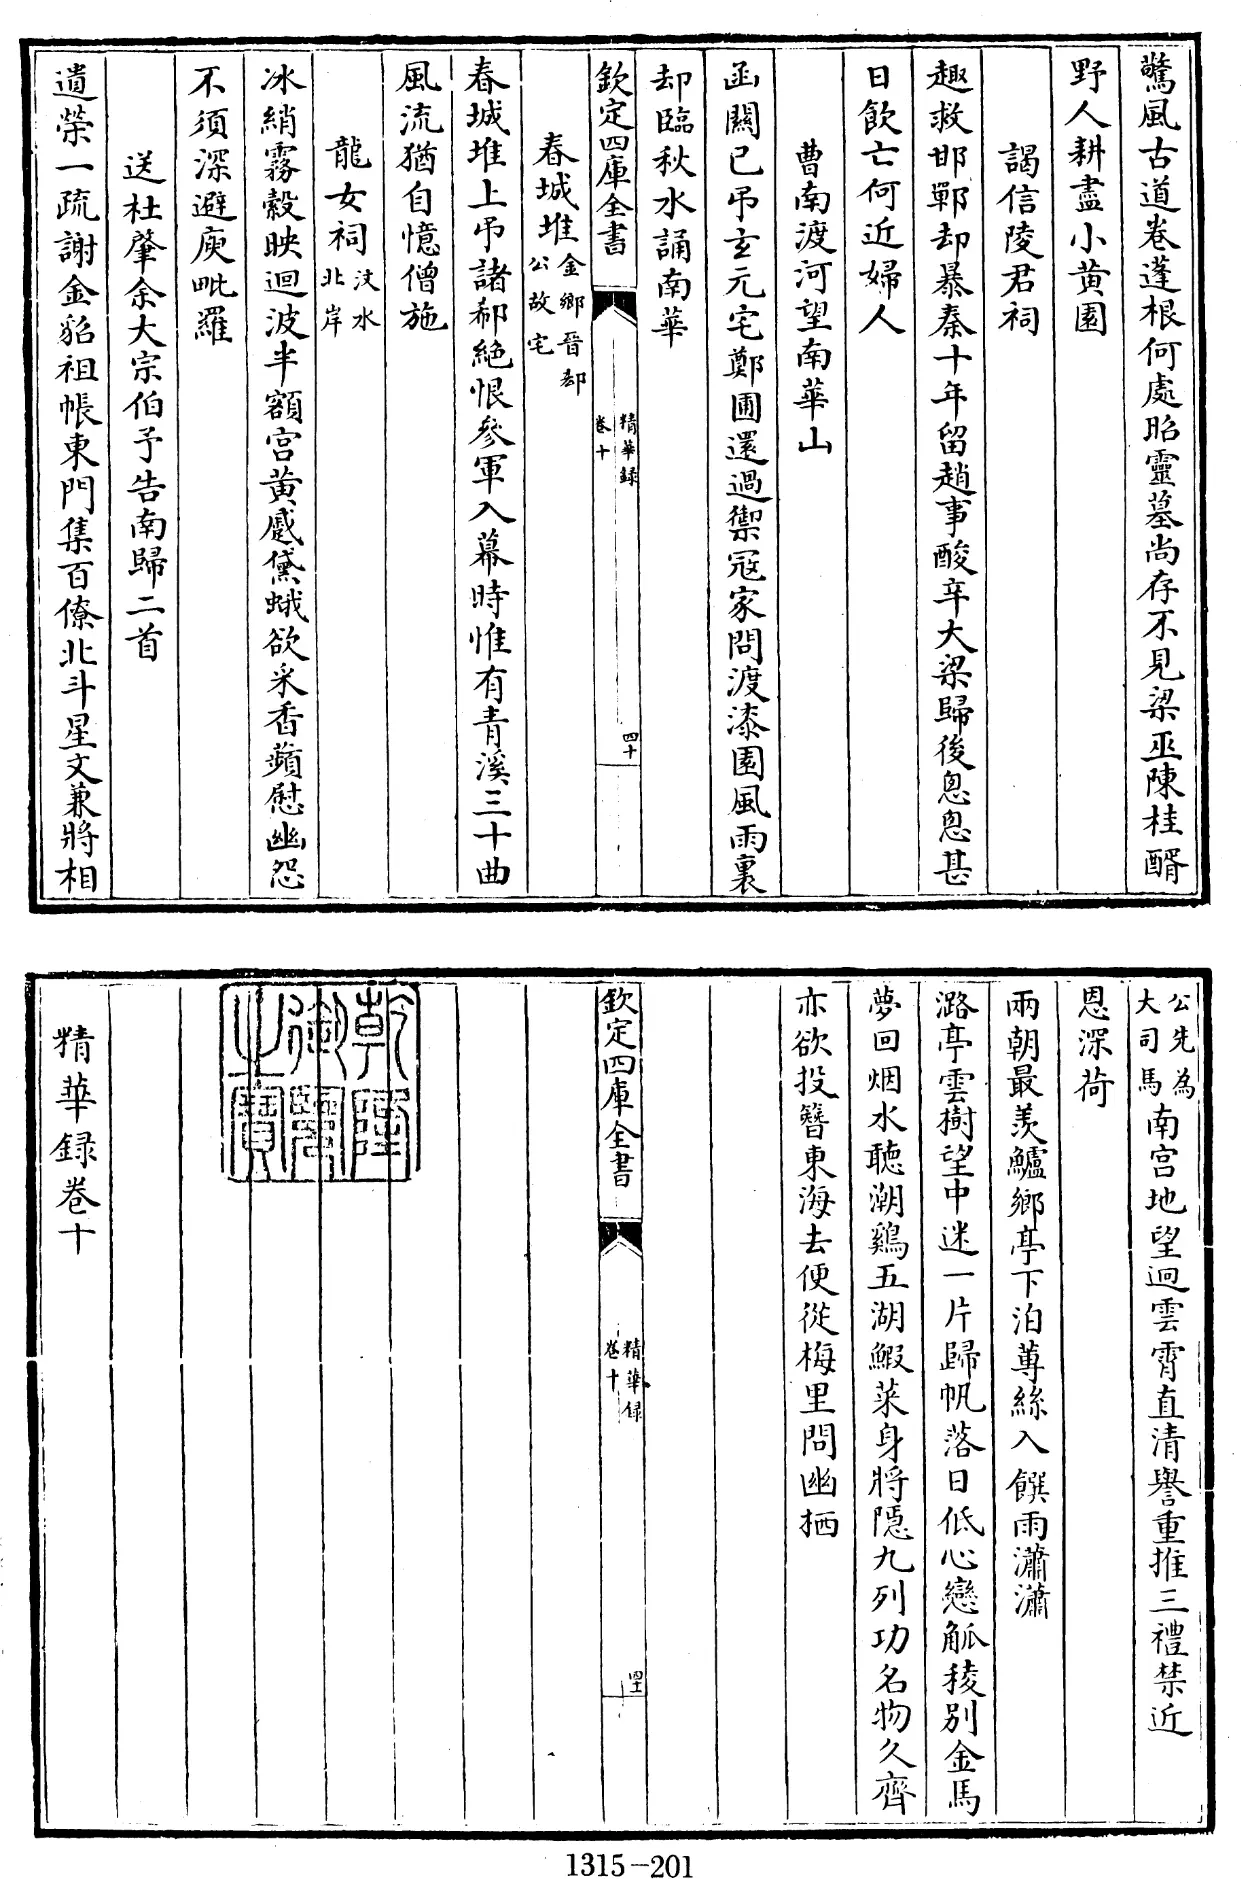 驚風古道卷蓬根何處昭靈墓尚存不見梁巫陳桂醑
野人耕盡小黄園
謁信陵君祠
趣救邯鄲却暴秦十年留趙事酸辛大梁歸後悤悤甚
日飲亡何近婦人
曹南渡河望南華山
函關已弔玄元宅鄭圃還過禦冦家問渡漆園風雨裏
却臨秋水誦南華
欽定四庫全書
精華録
卷十
四十
春城堆金鄉晉郗
公故宅
春城堆上弔諸郗絶恨參軍入幕時惟有青溪三十曲
風流猶自憶僧施
龍女祠汶水
北岸
冰綃霧縠映迴波半額宫黄慼黛蛾欲采香蘋慰幽怨
不須深避庾毗羅
送杜肇余大宗伯予告南歸二首
遺榮一疏謝金貂祖帳東門集百僚北斗星文兼將相
公先為
大司馬南宫地望迥雲霄直清譽重推三禮禁近
恩深荷
兩朝最羡鱸鄉亭下泊蓴絲入饌雨瀟瀟
潞亭雲樹望中迷一片歸帆落日低心戀觚稜别金馬
夢回烟水聽潮鷄五湖鰕菜身將隱九列功名物久齊
亦欲投簪東海去便從梅里問幽栖
欽定四庫全書
精華録
卷十
四十一
乾隆御覽之寶
精華録卷十
1315-201